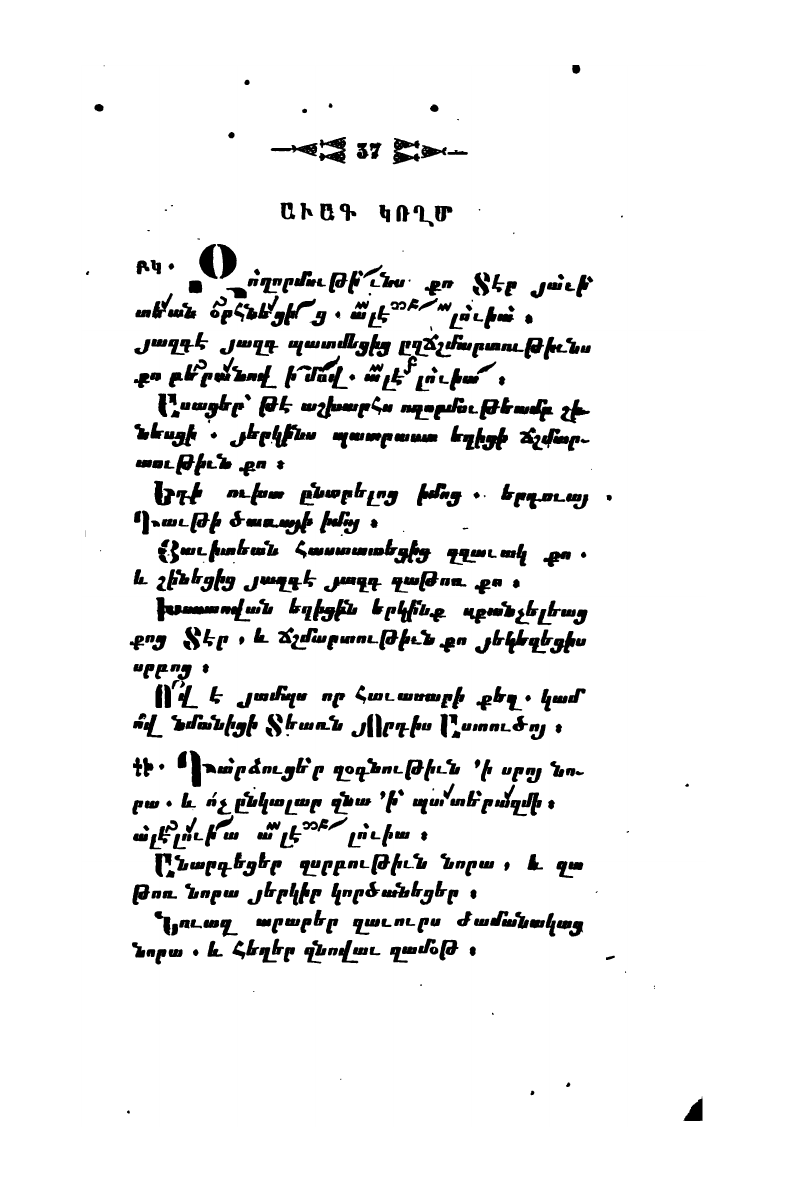 37
ԱՒԱԳ ԿՈՂՄ
բկ. Զողորմութի՛ւնս քո Տէր յաւի
տեան օրհնեցից. ալէլուիա։
յազգէ յազգ պատմեցից ըզճշմարտութիւնս
քո բերանով իմով. ալէլուիա։
Ըսացեր՝ թէ աշխարհս ողորմութեամբ շի-
նեսցի. յերկինս պատրաստ եղիցի ճշմար-
տութիւն քո։
Եդի ուխտ ընտրելոց իմոց. երդուայ
Դաւթի ծառայի իմոյ։
Յաւիտեան հաստատեցից զզաւակ քո.
և շինեցից յազգէ յազգ զաթոռ քո։
Խոստովան եղիցին երկինք սքանչելեաց
քոց Տէր, և ճշմարտութիւն քո յեկեղեցիս
սրբոց։
Ո՞վ է յամպս որ հաւասարի քեզ. կամ
ո՞վ նմանիցի Տեառն յՈրդիս Աստուծոյ։
դկ. Դարձուցեր զօգնութիւն ՚ի սրոյ նո-
րա. և ո՛չ ընկալար զնա ՚ի պատերազմի։
ալէլուիա ալէլուիա։
Ընարգեցեր զսրբութիւն նորա, և զա
թոռ նորա յերկիր կործանեցեր։
Նուազ արարեր զաւուրս ժամանակաց
նորա. և հեղեր զնովաւ զամօթ։